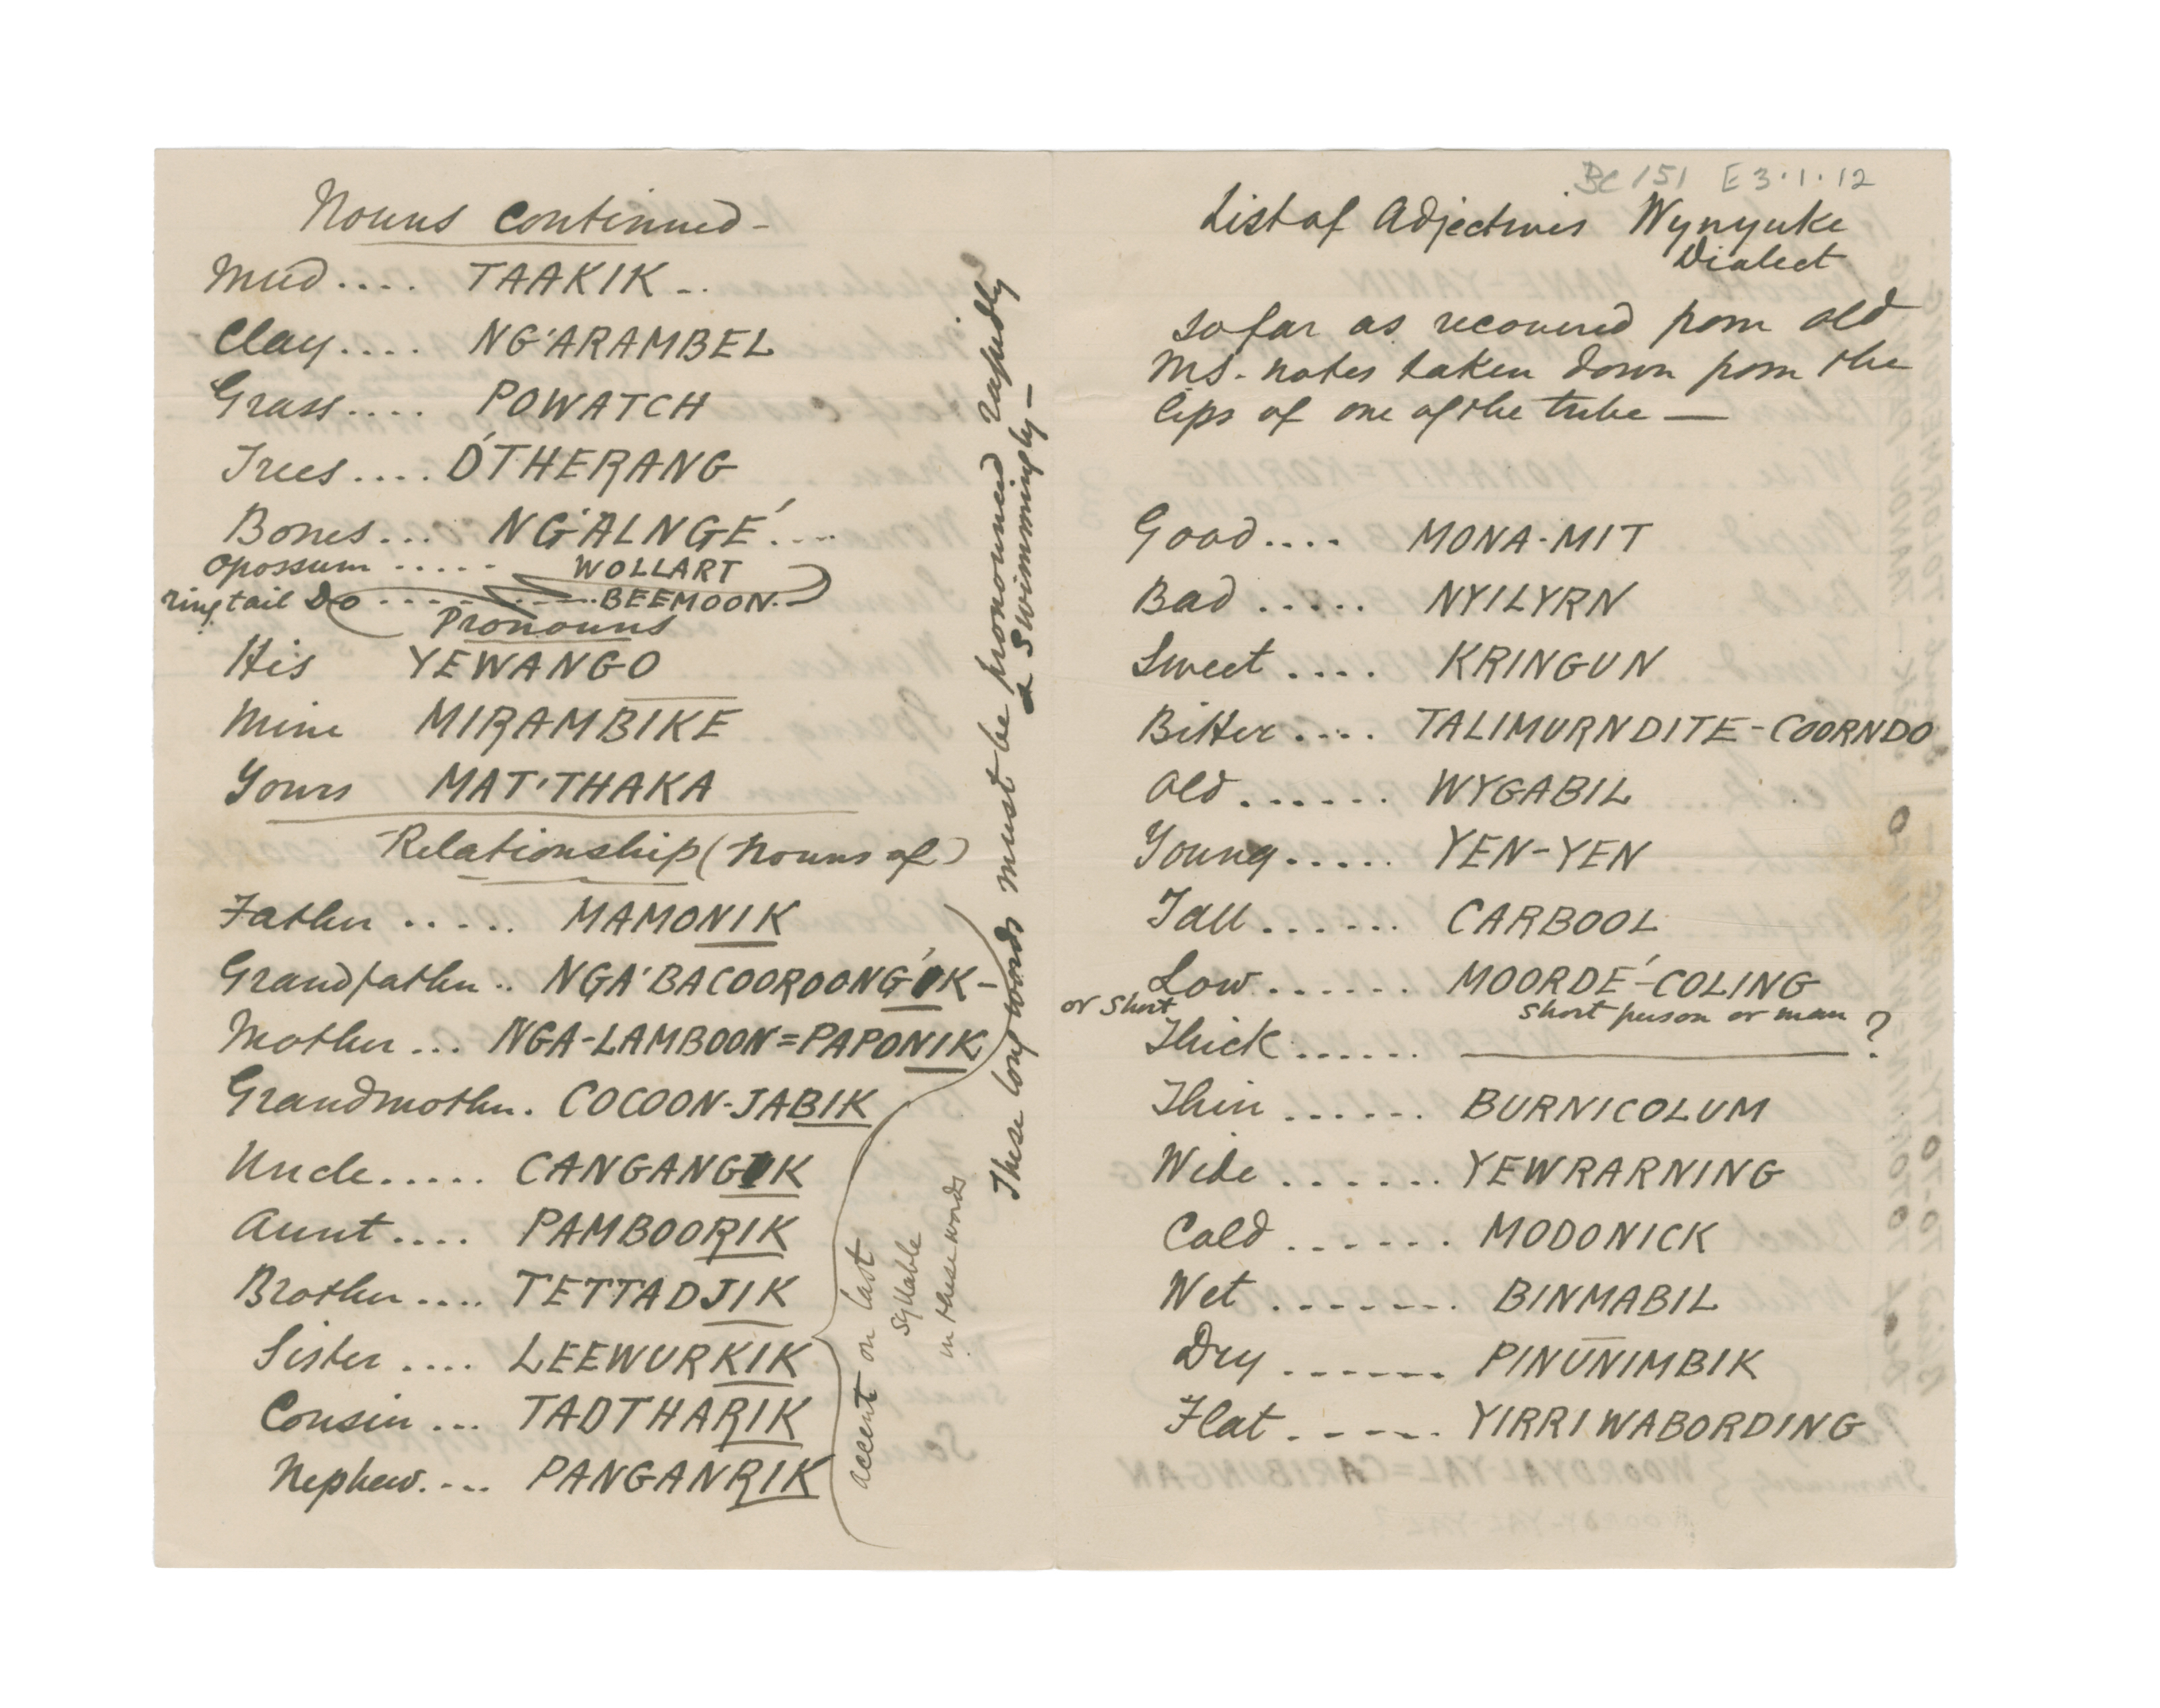 Nouns continued -
Mud.... TAAKIK -..
Clay.... NG'ARAMBEL
Grass.... POWATCH
Trees.... ÓTHERANG
Bones... NG'ALNGÉ....
Opossum ..... WOLLART
ring tail Do ........ BEEMOON.
Pronouns
His YEWANGO
Mine MIRAMBIKE
Yours MAT'THAKA
Relationship (nouns of)
Father ..... MAMONIK
Grandfather.. NGA'BACOOROONG'IK -
Mother ... NGA-LAMBOON=PAPONIK
Grandmother. COCOON-JABIK
Uncle..... CANGANGIK
Aunt.... PAMBOORIK
Brother.... TETTADJIK
Sister .... LEEWURKIK
Cousin ... TADTHARIK
Nephew.... PANGANRIK
accent on last
syllable
in these words
These long words must be pronounced rapidly
& swimmingly -
BC 151 E 3.1.12
List of Adjectives Wynyuke
Dialect
so far as recovered from old
MS. notes taken down from the
lips of one of the tribe —
Good.... MONA-MIT
Bad ..... NYILYRN
Sweet .... KRINGUN
Bitter .... TALIMURNDITE-COORNDO
Old ...... WYGABIL
Young..... YEN-YEN
Tall ...... CARBOOL
Low ...... MOORDÉ-COLING
or short short person or man
Thick ...... ——— ?
Thin ...... BURNICOLUM
Wide ...... YEWRARNING
Cold ...... MODONICK
Wet ....... BINMABIL
Dry ...... PINŪNIMBIK
Flat ..... YIRRIWABORDING